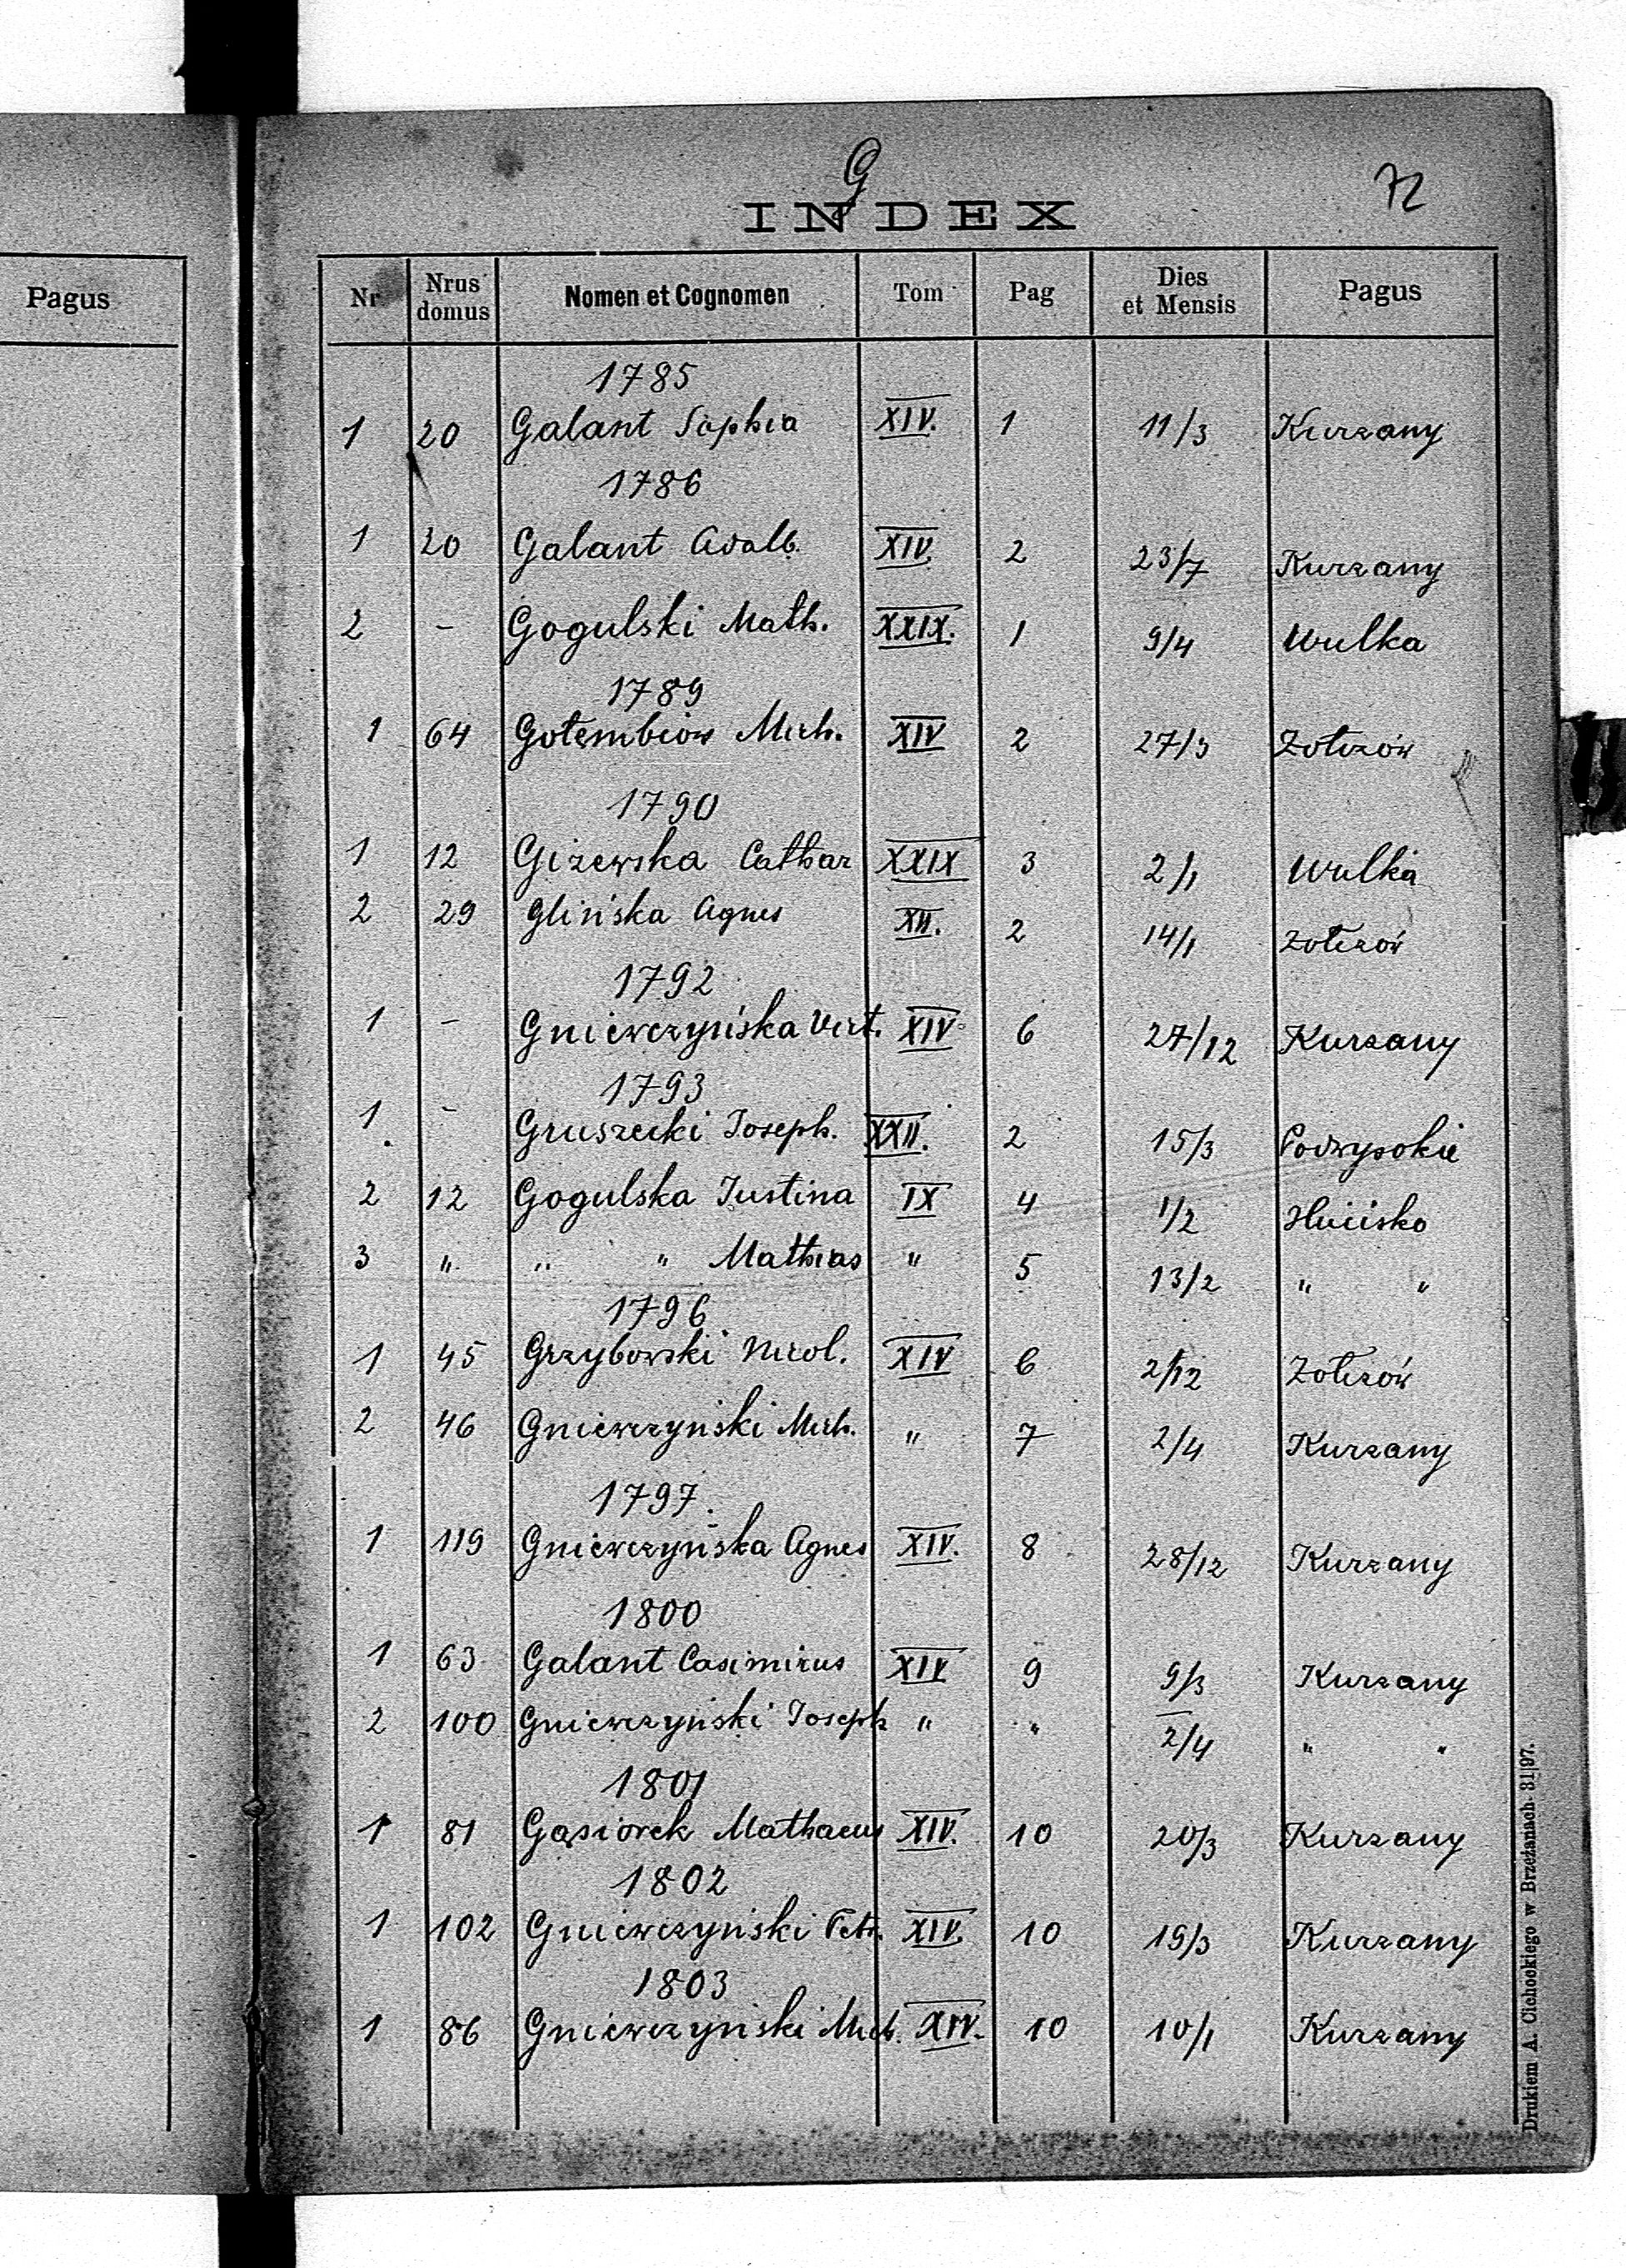 G
72
INDEX
Pagus
Nr Nrus domus Nomen et Cognomen Tom Pag Dies et Mensis Pagus
1785
1 20 Galant Sophia XIV. 1 11/3 Kurzany
1786
1 20 Galant Adalb. XIV. 2 23/7 Kurzany
2 - Gogulski Math. XXIX. 1 9/4 Wulka
1789
1 64 Gołembiow Mich. XIV 2 27/3 Żołczów
1790
1 12 Giżewska Cathar XXIX 3 2/1 Wulka
2 29 Glińska Agnes XII. 2 14/1 Żołczów
1792
1 - Gniewczyńska Vict. XIV 6 27/12 Kurzany
1793
1. - Gruszecki Joseph. XXII. 2 15/3 Podwysokie
2 12 Gogulska Justina IX 4 1/2 Hucisko
3 " " " Mathias " 5 13/2 " "
1796
1 45 Grzybowski Nicol. XIV 6 2/12 Żołczów
2 46 Gniewczyński Mich. " 7 2/4 Kurzany
1797.
1 119 Gniewczyńska Agnes XIV. 8 28/12 Kurzany
1800
1 63 Galant Casimirus XIV 9 9/3 Kurzany
2 100 Gniewczyński Joseph " " 2/4 " "
1801
1 81 Gąsiorek Mathaeus XIV. 10 20/3 Kurzany
1802
1 102 Gniewczyński Petr. XIV. 10 19/3 Kurzany
1803
1 86 Gniewczyński Mich. XIV. 10 10/1 Kurzany
Drukiem A. Cichockiego w Brzeżanach 31|97.